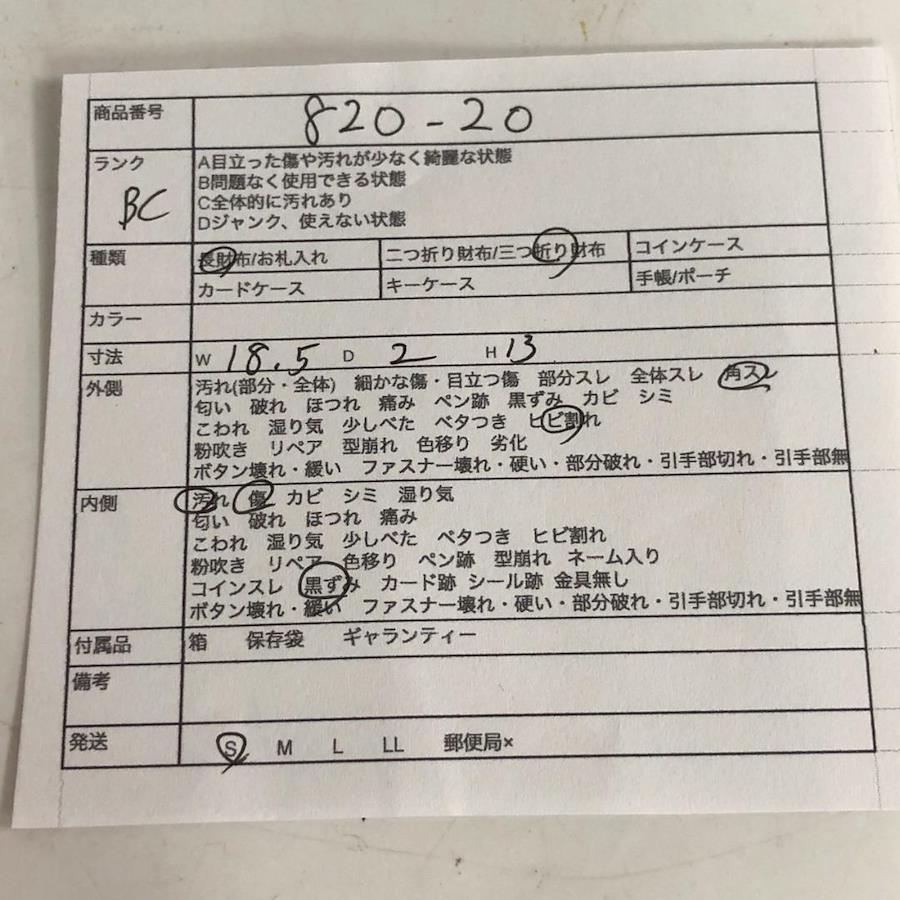 商品番号 820-20
ランク BC
A目立った傷や汚れが少なく綺麗な状態
B問題なく使用できる状態
C全体的に汚れあり
Dジャンク、使えない状態
種類 長財布/お札入れ 二つ折り財布/三つ折り財布 コインケース
カードケース キーケース 手帳/ポーチ
カラー
寸法 W 18.5 D 2 H 13
外側 汚れ(部分・全体) 細かな傷・目立つ傷 部分スレ 全体スレ 角スレ
匂い 破れ ほつれ 痛み ペン跡 黒ずみ カビ シミ
こわれ 湿り気 少しべた ベタつき ヒビ割れ
粉吹き リペア 型崩れ 色移り 劣化
ボタン壊れ・緩い ファスナー壊れ・硬い・部分破れ・引手部切れ・引手部無
内側 汚れ 傷 カビ シミ 湿り気
匂い 破れ ほつれ 痛み
こわれ 湿り気 少しべた ベタつき ヒビ割れ
粉吹き リペア 色移り ペン跡 型崩れ ネーム入り
コインスレ 黒ずみ カード跡 シール跡 金具無し
ボタン壊れ・緩い ファスナー壊れ・硬い・部分破れ・引手部切れ・引手部無
付属品 箱 保存袋 ギャランティー
備考
発送 S M L LL 郵便局×